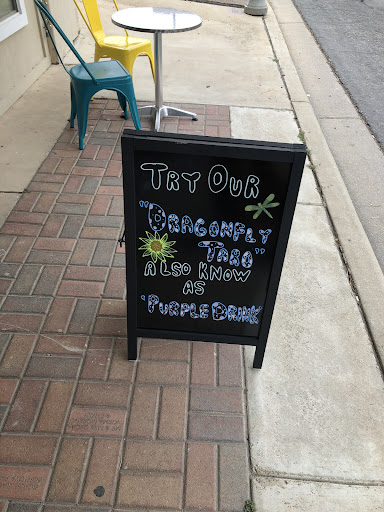 TRY OUR
"DRAGONFLY
TARO"
ALSO KNOW
AS
"PURPLE DRINK"